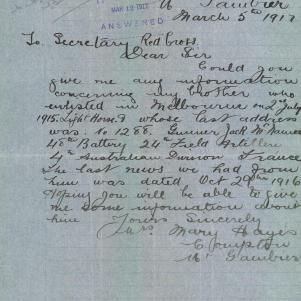 Mt Gambier
MAR 12 1917
March 5th 1917
ANSWERED
To. Secretary Red Cross.
Dear Sir
Could you
give me any information
concerning my brother who
enlisted in Melbourne on 2 July
1915. Light Horse. & whose last address
was. No 1288. Gunner Jack Mc
48th Battery 24th Field Artillery
4th Australian Division France
The last news we had from
him was dated Oct 29th 1916
Hoping you will be able to give
me some information about
him Yours Sincerely
Mrs. Mary Hayes
Compton
Mt Gambier